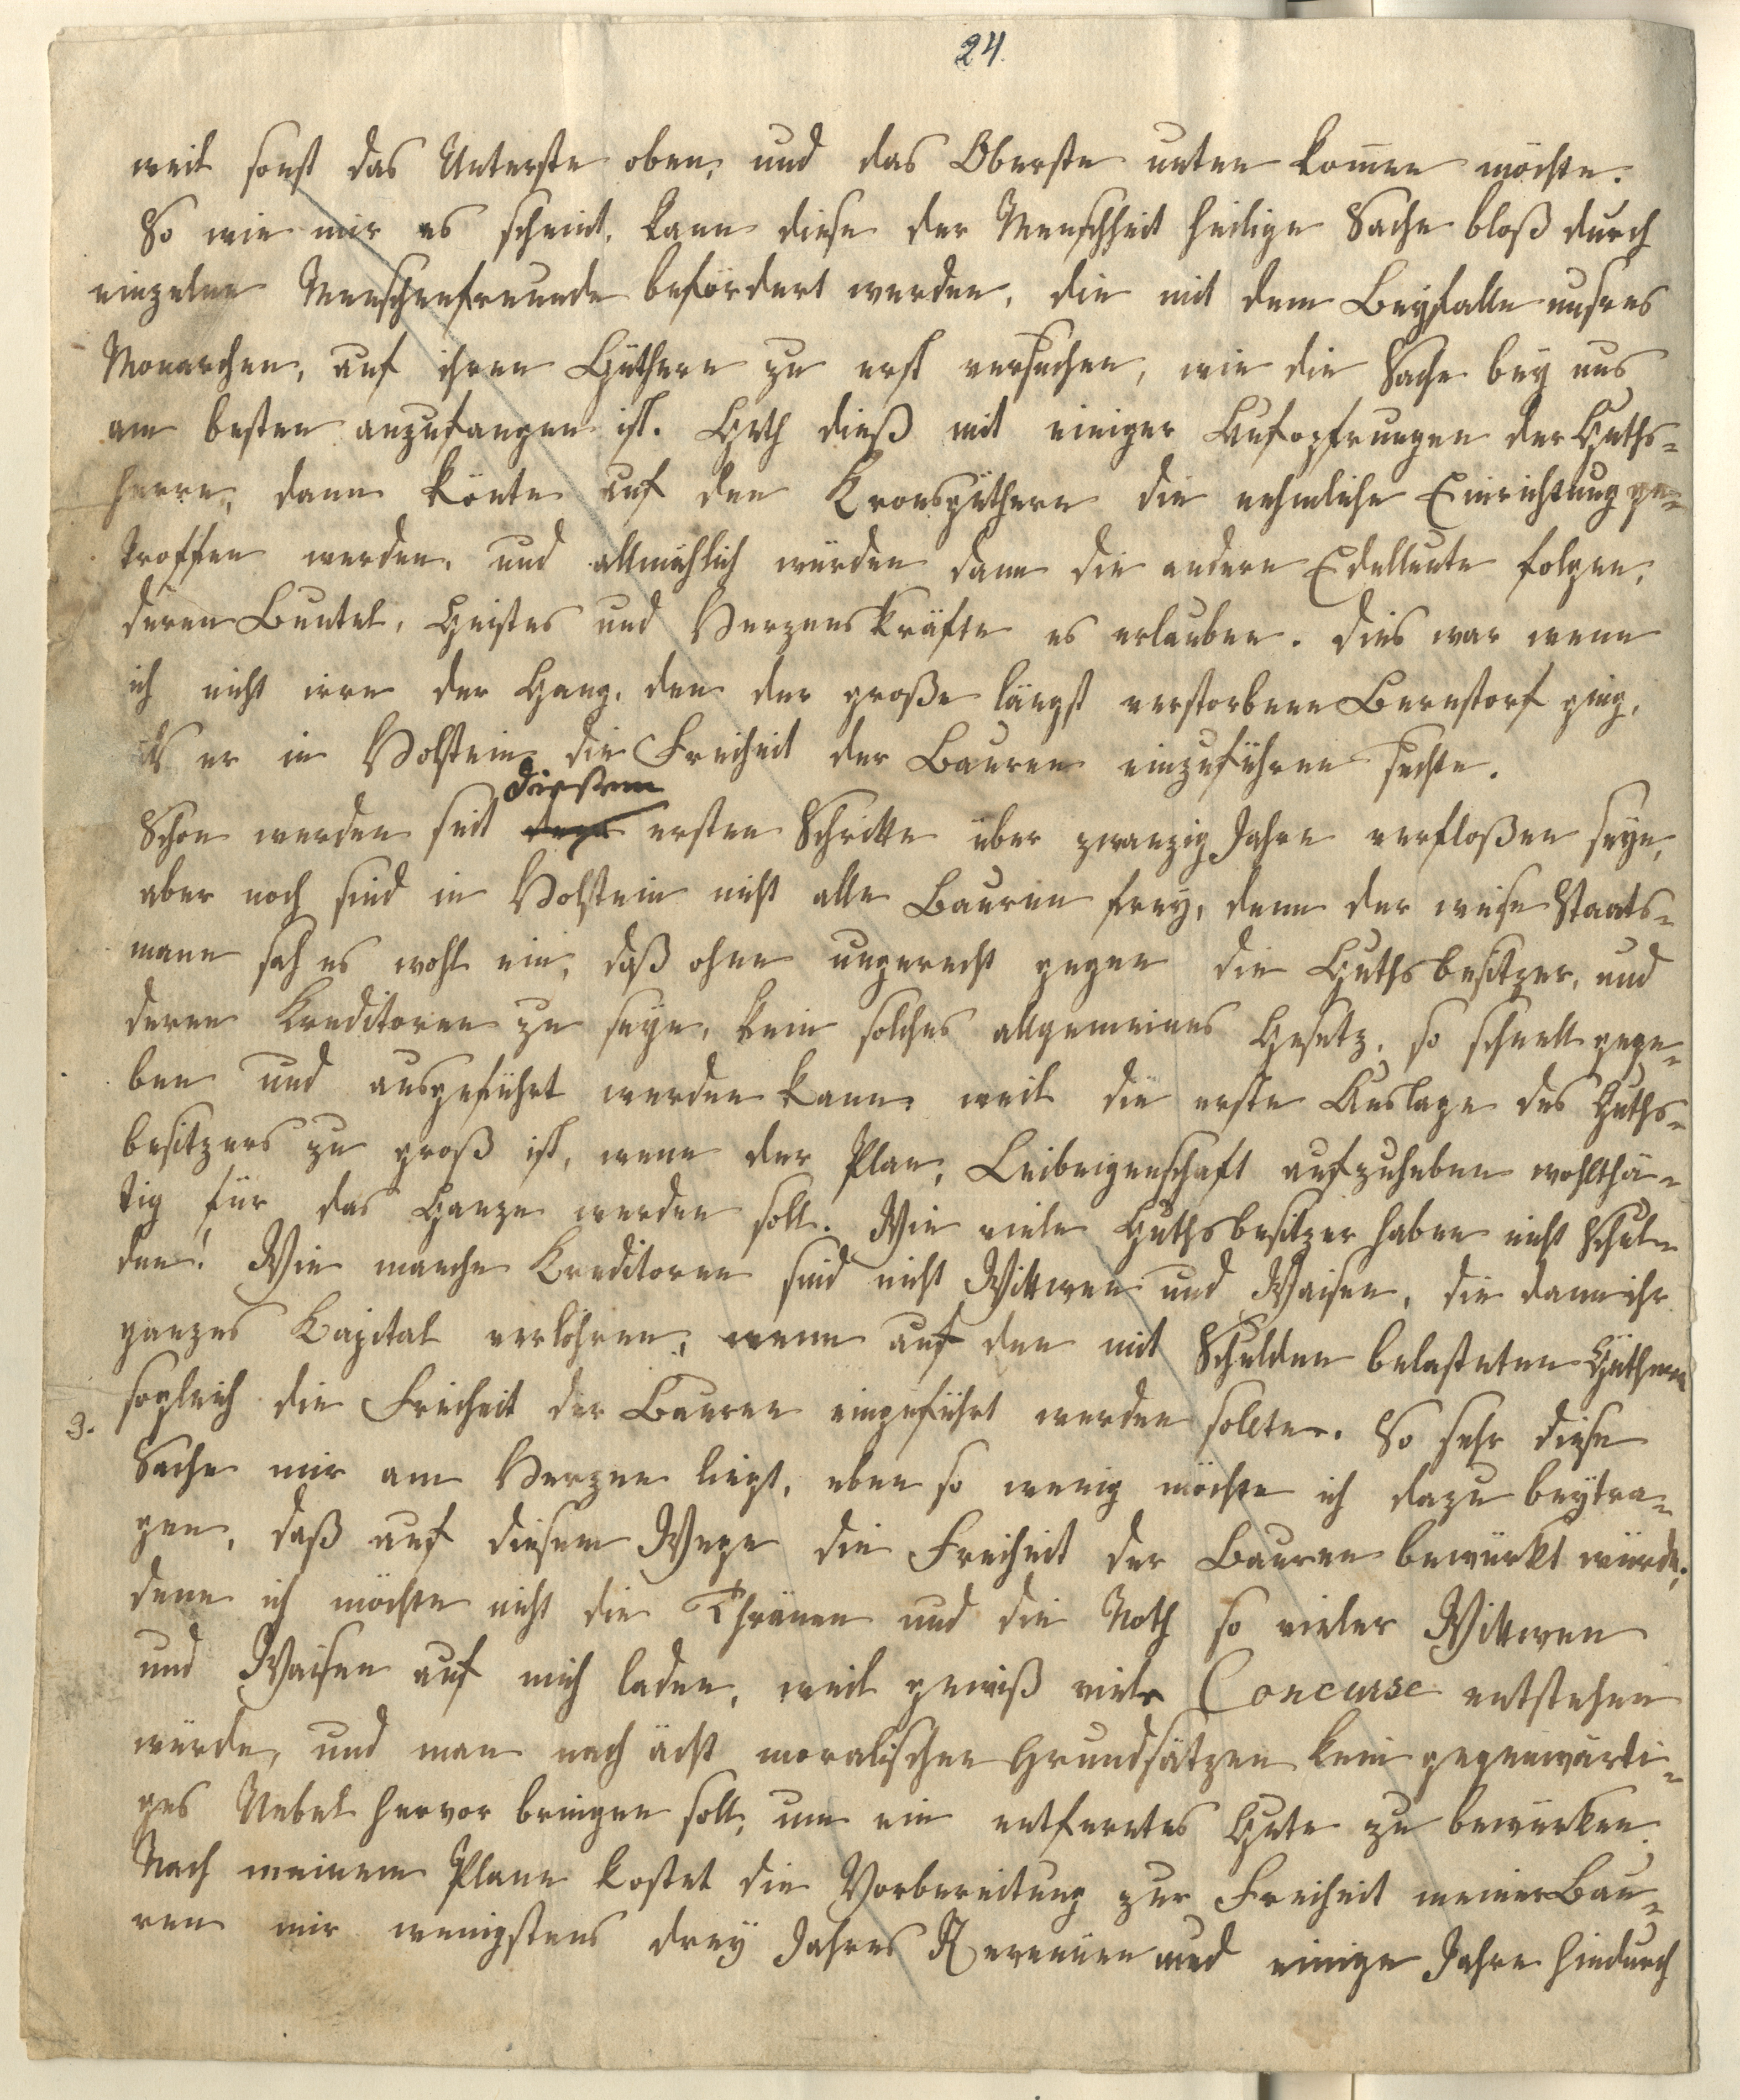 24.
weil sonst das Unterste oben, und das Oberste unten kom̅en möchte.
So wie mir es scheint, kann diese der Menschheit heilige Sache bloß durch
einzelne Menschenfreunde befördert werden, die mit dem Beyfalle unsres
Monarchen, auf ihren Güthern zu erst versuchen, wie die Sache bey uns
am besten anzufangen ist. Geth dieß mit einiger Aufopfrungen der Guths-
herrn, dann könte auf den Kronsgüthern die nehmliche Einrichtung ge-
troffen werden, und allmählich würden dann die andern Edelleute folgen,
deren Beutel, Geistes und Herzenskräfte es erlauben. Dies war wenn
ich nicht irre der Gang, den der große längst verstorbene Bernstorf ging,
als er in Holstein die Freiheit der Bauren einzuführen suchte.
diesem
Schon werden seit dem ersten Schritte über zwanzig Jahre verfloßen seyn,
aber noch sind in Holstein nicht alle Bauren frey, denn der weise Staats-
mann sah es wohl ein, daß ohne ungerecht gegen die Guthsbesitzer, und
deren Kreditoren zu seyn, kein solches allgemeines Gesetz, so schnell gege-
ben und ausgeführt werden kann, weil die erste Auslage des Guths-
besitzers zu groß ist, wenn der Plan, Leibeigenschaft aufzuheben wohlthä-
tig für das Ganze werden soll. Wie viele Guthsbesitzer haben nicht Schul-
den! Wie manche Kreditoren sind nicht Wittwen und Waisen, die dann ihr
ganzes Kapital verlöhren, wenn auf den mit Schulden belasteten Güthern
3. sogleich die Freiheit der Bauren eingeführt werden sollte. So sehr diese
Sache mir am Herzen liegt, eben so wenig möchte ich dazu beytra-
gen, daß auf diesem Wege die Freiheit der Bauren bewürkt würde;
denn ich möchte nicht die Thränen und die Noth so vieler Wittwen
und Waisen auf mich laden, weil gewiß viele Concurse entstehen
würden, und man nach ächt moralischen Grundsätzen kein gegenwärti-
ges Uebel hervor bringen soll, um ein entferntes Gute zu bewürken.
Nach meinem Plane kostet die Vorbereitung zur Freiheit meiner Bau-
ren mir wenigstens drey Jahres Revenüen und einige Jahre hindurch